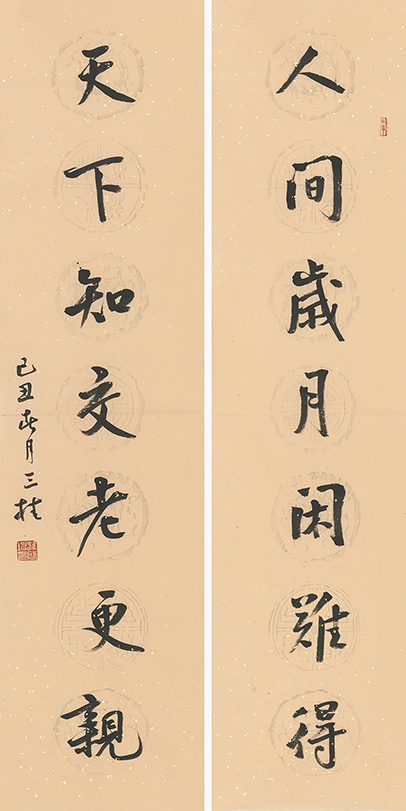 人間歲月閑難得
天下知交老更親
己丑春月三桂